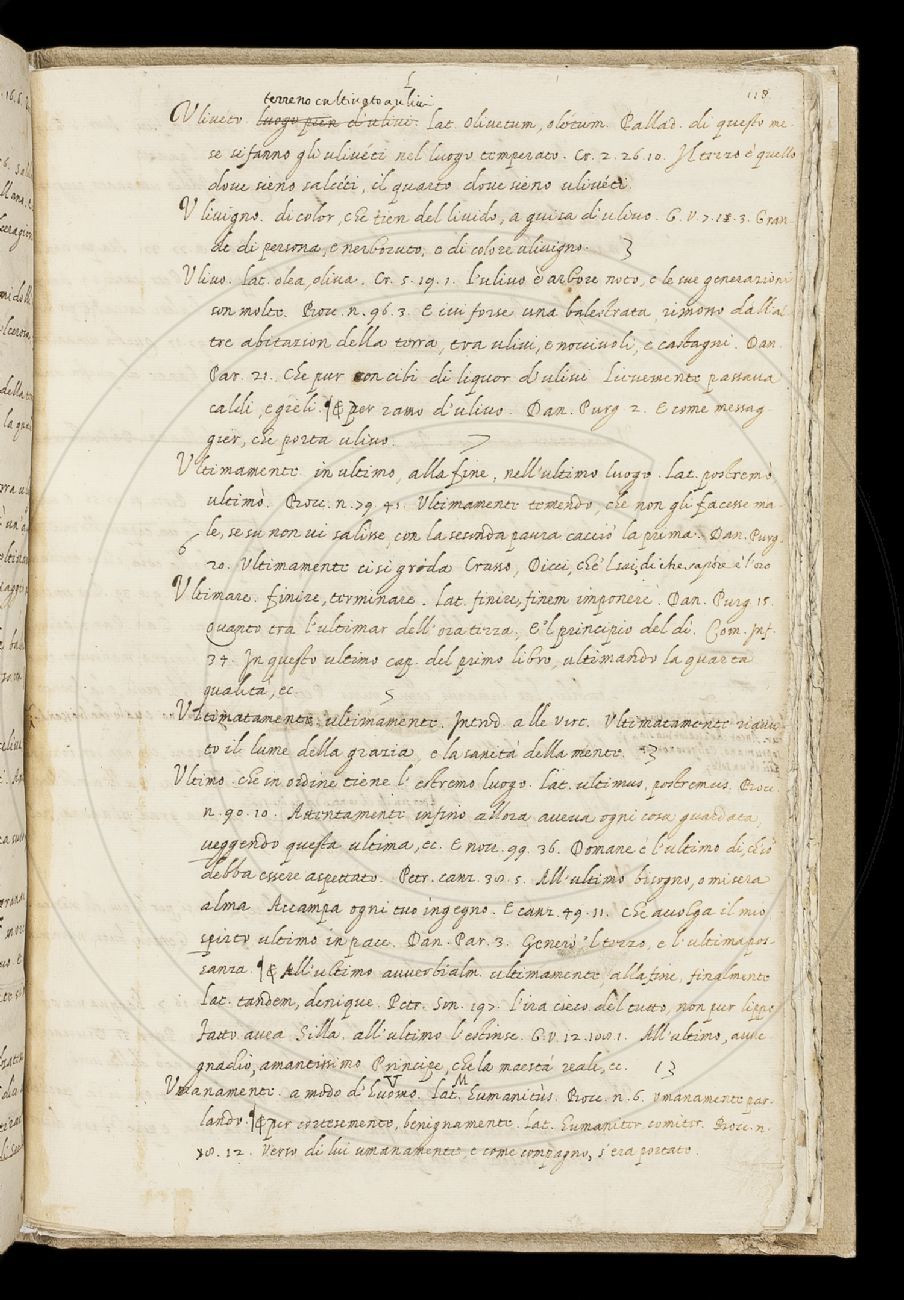 118
terreno cultivato a ulivi
Vliveto. luogo pien d'ulivi. Lat. Olivetum, oletum. Pallad. di questo me-
se si fanno gli ulivéti nel luogo temperato. Cr. 2. 26. 10. Il terzo è quello
dove sieno salcéti, il quarto dove sieno ulivéti.
Vlivigno. di color, che tien del livido, a guisa d'ulivo. G. V. 7. 18. 3. Gran-
de di persona, e nerboruto, e di colore ulivigno.
Vlivo. Lat. olea, oliva. Cr. 5. 19. 1. L'ulivo è arbore noto, e le sue generazioni
son molte. Bocc. n. 96. 3. E ivi forse una balestrata, rimoso dall'al-
tre abitazion della terra, tra ulivi, e nocciuoli, e castagni. Dan.
Par. 21. Che pur con cibi di liquor d'ulivi Lievemente passava
caldi, e gieli. ¶ E per ramo d'ulivo. Dan. Purg. 2. E come messag-
gier, che porta ulivo.
Vltimamente. in ultimo, alla fine, nell'ultimo luogo. Lat. postremò
ultimò. Bocc. n. 79. 41. Ultimamente temendo, che non gli facesse ma-
le, se su non vi salisse, con la seconda paura cacciò la prima. Dan. Purg.
20. Ultimamente ci si grida Crasso, Dicci, che 'l sai, di che sapore è l'oro
Vltimare. finire, terminare. Lat. finire, finem imponere. Dan. Purg. 15.
Quanto tra l'ultimar dell'ora terza, E 'l principio del dì. Com. Inf.
34. In questo ultimo cap. del primo libro, ultimando la quarta
qualità, ec.
Vltimatamente. ultimamente. Introd. alle virt. Ultimatamente riavu-
to il lume della grazia, e la sanità della mente.
Vltimo. che in ordine tiene l'estremo luogo. Lat. ultimus, postremus. Bocc.
n. 90. 10. Attentamente infino allora aveva ogni cosa guardata,
veggendo questa ultima, ec. E nov. 99. 36. Domane è l'ultimo dì, ch'io
debba essere aspettato. Petr. canz. 38. 5. All'ultimo bisogno, o misera
alma Accampa ogni tuo ingegno. E canz. 49. 11. Che accolga il mio
spirto ultimo in pace. Dan. Par. 3. Generò 'l terzo, e l'ultima pos-
sanza. ¶ E All'ultimo avverbialm. ultimamente, alla fine, finalmente
Lat. tandem, denique. Petr. Son. 197. L'ira cieco del tutto, non pur lippo
Fatto avea Silla, all'ultimo l'estinse. G. V. 12. 108. 1. All'ultimo, avve-
gnadio, amantissimo Principe, che la maestà reale, ec.
Vmanamente. a modo d'huomo. Lat. humanitùs. Bocc. n. 6. umanamente par-
lando. ¶ E per cortesemente, benignamente. Lat. humaniter comiter. Bocc. n.
98. 12. Verso di lui umanamente, e come compagno, s'era portato.